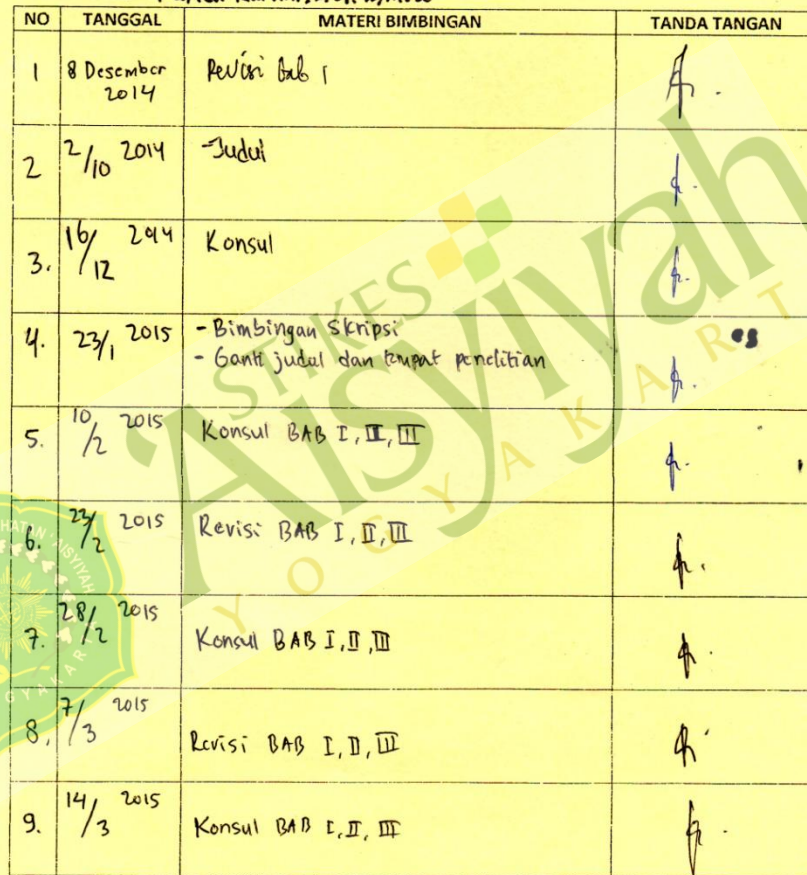 NO TANGGAL MATERI BIMBINGAN TANDA TANGAN
1 8 Desember 2014 Revisi Bab 1
2 2/10 2014 -Judul
3. 16/12 2014 Konsul
4. 23/1 2015 - Bimbingan Skripsi
- Ganti judul dan tempat penelitian
5. 10/2 2015 Konsul BAB I, II, III
6. 23/2 2015 Revisi BAB I, II, III
7. 28/2 2015 Konsul BAB I, II, III
8. 7/3 2015 Revisi BAB I, II, III
9. 14/3 2015 Konsul BAB I, II, III
STIKES
'Aisyiyah
YOGYAKART